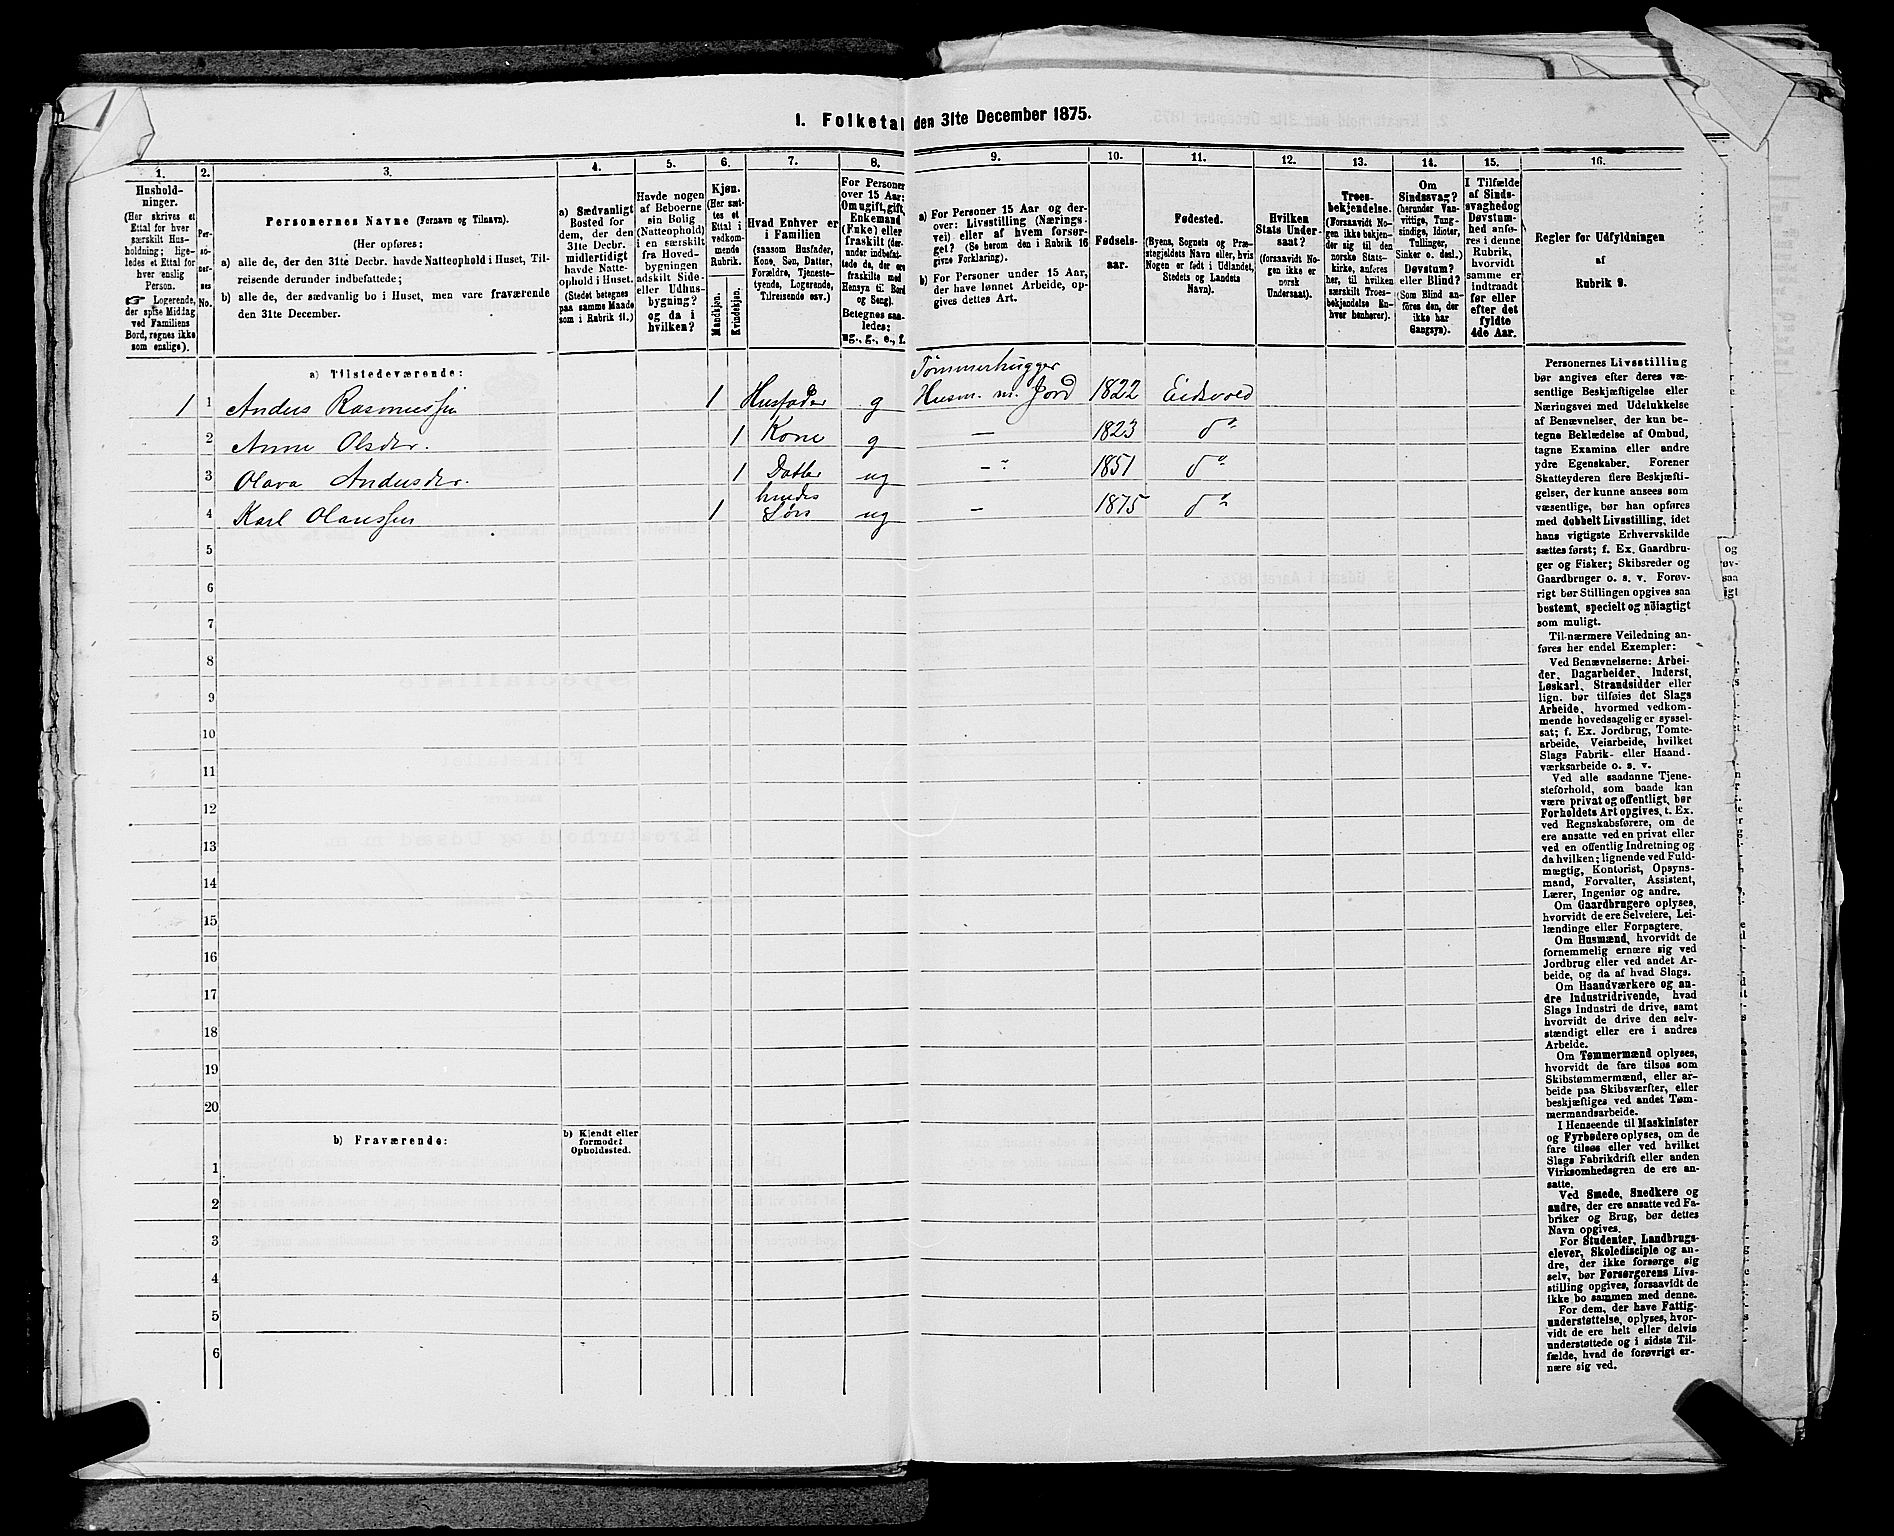 1. Folketal den 31te December 1875.
1.
Hushold-
ninger.
(Her skrives et
Ettal for hver
særskilt Hus-
holdning; lige-
ledes et Ettal for
hver enslig
Person.
☞ Logerende,
der spise Middag
ved Familiens
Bord, regnes ikke
som enslige).
2.
Per-
so-
ner-
nes
No.
3.
Personernes Navne (Fornavn og Tilnavn).
(Her opføres:
a) alle de, der den 31te Decbr. havde Natteophold i Huset, Til-
reisende derunder indbefattede;
b) alle de, der sædvanlig bo i Huset, men vare fraværende
den 31te December.
4.
a) Sædvanligt
Bosted for
dem, der den
31te Decbr.
midlertidigt
havde Natte-
ophold i Huset.
(Stedet betegnes
paa samme Maade
som i Rubrik 11.)
5.
Havde nogen
af Beboerne
sin Bolig
(Natteophold)
i en særskilt
fra Hoved-
bygningen
adskilt Side-
eller Udhus-
bygning?
og da i
hvilken?
6.
Kjøn.
(Her sæt-
tes et
Ettal i
vedkom-
mende
Rubrik.
Mandkjøn.
Kvindekjøn.
7.
Hvad Enhver er
i Familien
(saasom Husfader,
Kone, Søn, Datter,
Forældre, Tjeneste-
tyende, Logerende,
Tilreisende osv.)
8.
For Personer
over 15 Aar:
Om ugift, gift,
Enkemand
(Enke) eller
fraskilt (der-
under indbefat-
tede da, der ere
fraskilte med
Hensyn til Bord
og Seng).
Betegnes saa-
ledes:
ug., g., e., f.
9.
a) For Personer 15 Aar og der-
over: Livsstilling (Nærings-
vei) eller af hvem forsør-
get? (Se herom den i Rubrik 16
givne Forklaring).
b) For Personer under 15 Aar,
der have lønnet Arbeide, op-
gives dettes Art.
10.
Fødsels-
aar.
11.
Fødested.
(Byens, Sognets og Præ-
stegjeldets Navn eller, hvis
Nogen er født i Udlandet,
Stedets og Landets
Navn).
12.
Hvilken
Stats Under-
saat?
(forsaavidt No-
gen ikke er
norsk
Undersaat).
13.
Troes-
bekjendelse.
(Forsaavidt No-
gen ikke bekjen-
der sig til den
norske Stats-
kirke, anføres
her, til hvilken
særskilt Troes-
bekjendelse En-
hver henhører).
14.
Om
Sindssvag?
(herunder Van-
vittige, Tung-
sindige, Idioter,
Tullinger,
Sinker o. desl.)
Døvstum?
eller Blind?
(Som Blind an-
føres den, der
ikke har
Gangsyn).
15.
I Tilfælde
af Sinds-
svaghed og
Døvstum-
hed anfø-
res i denne
Rubrik,
hvorvidt
samme er
indtraadt
før eller
efter det
fyldte
4de Aar.
16.
Regler for Udfyldningen
af
Rubrik 9.
a) Tilstedeværende:
Tømmerhugger
1 1 Anders Rasmussen 1 Husfader g Husm. m. Jord 1822 Eidsvold
2 Anne Olsdtr. 1 Kone g – 1823 do
3 Olava Andersdtr. 1 Datter ug –"– 1851 do
hendes
4 Karl Olaussen 1 Søn ug – 1875 do
5
6
7
8
9
10
11
12
13
14
15
16
17
18
19
20
b) Fraværende:
b) Kjendt eller
formodet
Opholdssted.
1
2
3
4
5
6
Personernes Livsstilling
bør angives efter deres væ-
sentlige Beskjæftigelse eller
Næringsvei med Udelukkelse
af Benævnelser, der kun be-
tegne Beklædelse af Ombud,
tagne Examina eller andre
ydre Egenskaber. Forener
Skatteyderen flere Beskjæfti-
gelser, der kunne ansees som
væsentlige, bør han opføres
med dobbelt Livsstilling, idet
hans vigtigste Erhvervskilde
sættes først; f. Ex. Gaardbru-
ger og Fisker; Skibsreder og
Gaardbruger o. s. v. Forøv-
rigt bør Stillingen opgives saa
bestemt, specielt og nöiagtigt
som muligt.
Til nærmere Veiledning an-
føres her endel Exempler:
Ved Benævnelserne: Arbei-
der, Dagarbeider, Inderst,
Løskarl, Strandsidder eller
lign. bør tilføies det Slags
Arbeide, hvormed vedkom-
mende hovedsagelig er syssel-
sat; f. Ex. Jordbrug, Tomte-
arbeide, Veiarbeide, hvilket
Slags Fabrik- eller Haand-
værksarbeide o. s. v.
Ved alle saadanne Tjene-
steforhold, som baade kan
være privat og offentligt, bør
Forholdets Art opgives, t. Ex.
ved Regnskabsførere, om de
ere ansatte ved en privat eller
ved en offentlig Indretning og
da hvilken; lignende ved Fuld-
mægtig, Kontorist, Opsyns-
mand, Forvalter, Assistent,
Lærer, Ingeniør og andre.
Om Gaardbrugere oplyses,
hvorvidt de ere Selveiere, Lei-
lændinge eller Forpagtere.
Om Husmænd, hvorvidt de
fornemmelig ernære sig ved
Jordbrug eller ved andet Ar-
beide, og da af hvad Slags.
Om Haandværkere og an-
dre Industridrivende, hvad
Slags Industri de drive, samt
hvorvidt de drive den selv-
stændigt eller ere i andres
Arbeide.
Om Tømmermænd oplyses,
hvorvidt de fare tilsøs som
Skibstømmermænd, eller ar-
beide paa Skibsværfter, eller
beskjæftiges ved andet Tøm-
mermandsarbeide.
I Henseende til Maskinister
og Fyrbødere oplyses, om de
fare tilsøs eller ved hvilket
Slags Fabrikdrift eller anden
Virksomhedsgren de ere an-
satte.
Ved Smede, Snedkere og
andre, der ere ansatte ved Fa-
briker og Brug, bør dettes
Navn opgives.
For Studenter, Landbrugs-
elever, Skoledisciple og an-
dre, der ikke forsørge sig
selv, bør Forsørgerens Livs-
stilling opgives, forsaavidt de
ikke bo sammen med denne.
For dem, der have Fattig-
understøttelse, oplyses, hvor-
vidt de ere helt eller delvis
understøttede og i sidste Til-
fælde, hvad de forøvrigt er-
nære sig ved.